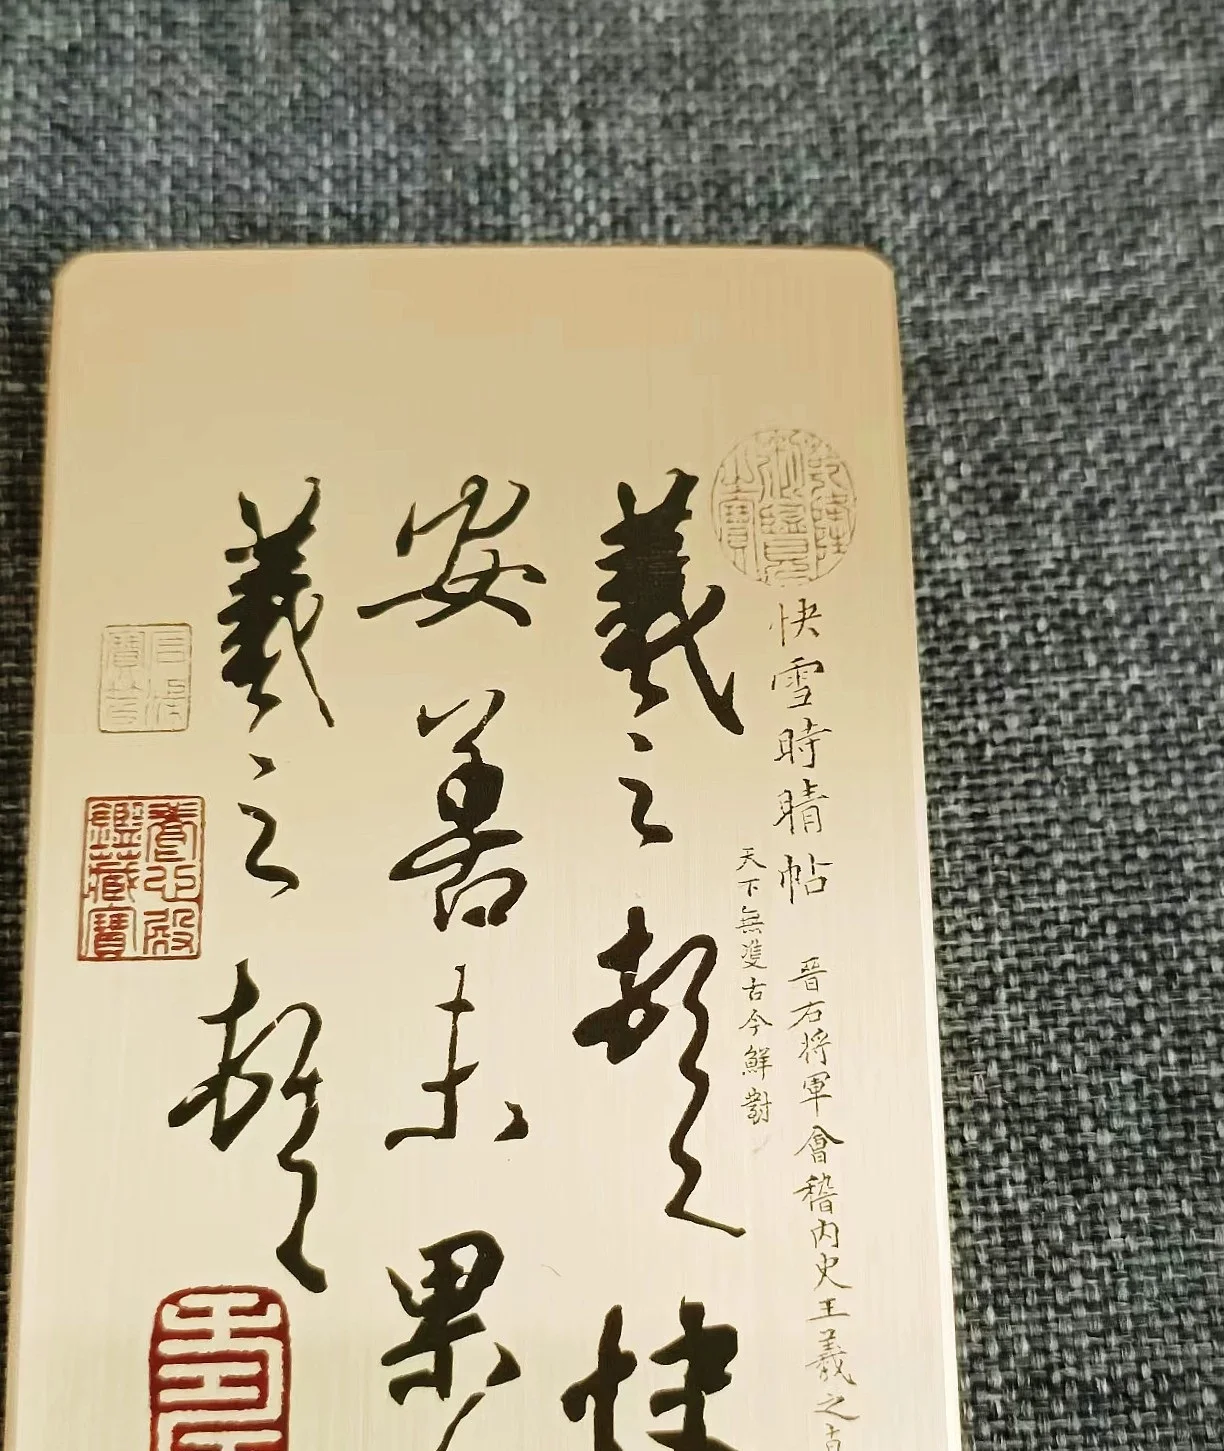 快雪時晴帖 晉右将軍會稽内史王羲之書
天下無雙古今鮮對
羲之頓首快
安善未果
羲之頓首
養心殿鑑藏寶